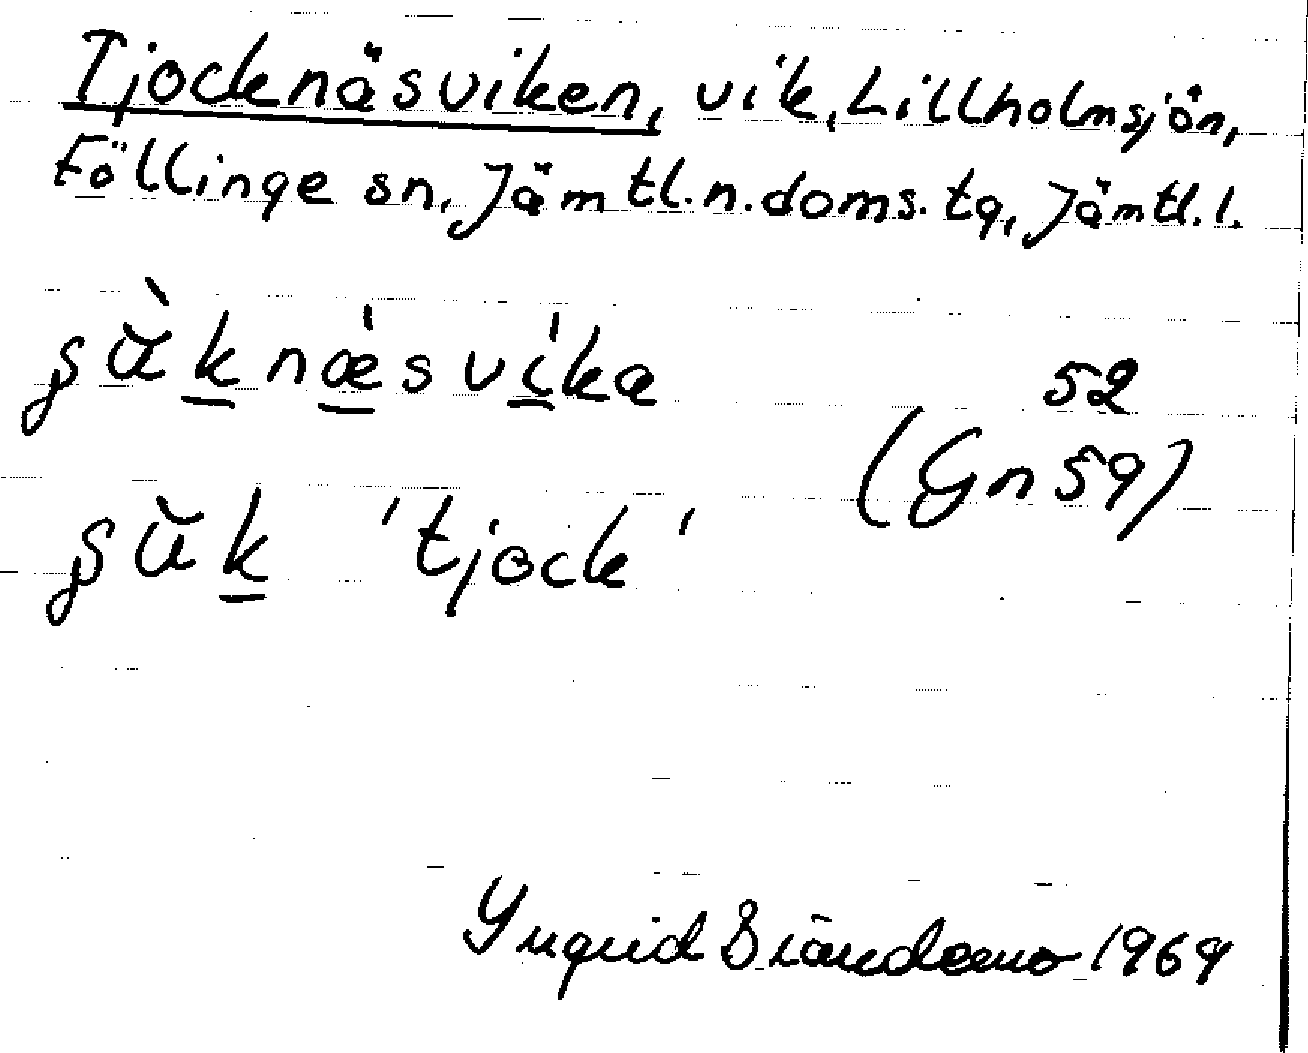 Tjocknäsviken, vik, Lillholmsjön,
Föllinge sn, Jämtl.n.doms.tg, Jämtl.l.
şʉ̀knǽsvíka
52
(Gn 59)
şʉ̆k 'tjock'
Yngrid 1969